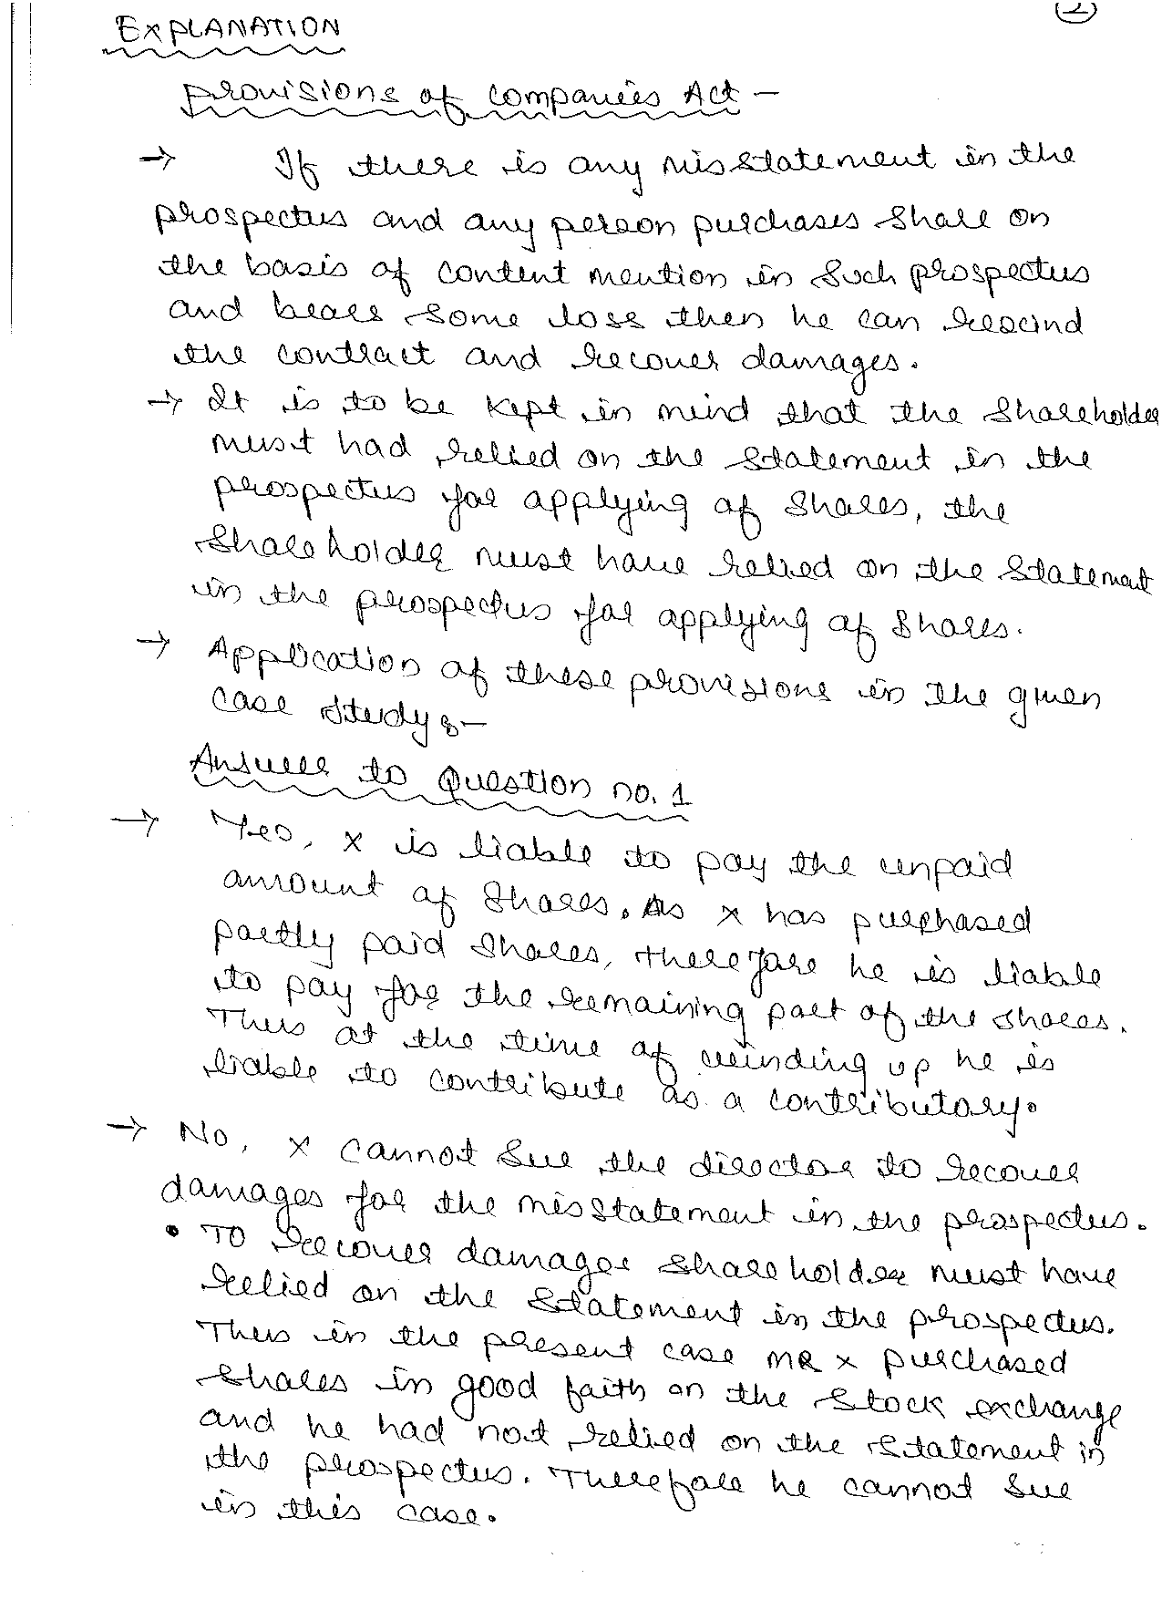 2
EXPLANATION
Provisions of Companies Act –
→ If there is any misstatement in the
prospectus and any person purchases share on
the basis of content mention in such prospectus
and bears some loss then he can rescind
the contract and recover damages.
→ It is to be kept in mind that the shareholder
must had relied on the statement in the
prospectus for applying of shares, the
shareholder must have relied on the statement
in the prospectus for applying of shares.
→ Application of these provisions in the given
case study :-
Answer to Question no. 1
→ Yes, x is liable to pay the unpaid
amount of shares. As x has purchased
partly paid shares, therefore he is liable
to pay for the remaining part of the shares.
Thus at the time of winding up he is
liable to contribute as a contributory.
→ No, x cannot sue the director to recover
damages for the misstatement in the prospectus.
• To recover damages shareholder must have
relied on the statement in the prospectus.
Thus in the present case MR x purchased
shares in good faith on the stock exchange
and he had not relied on the statement in
the prospectus. Therefore he cannot sue
in this case.